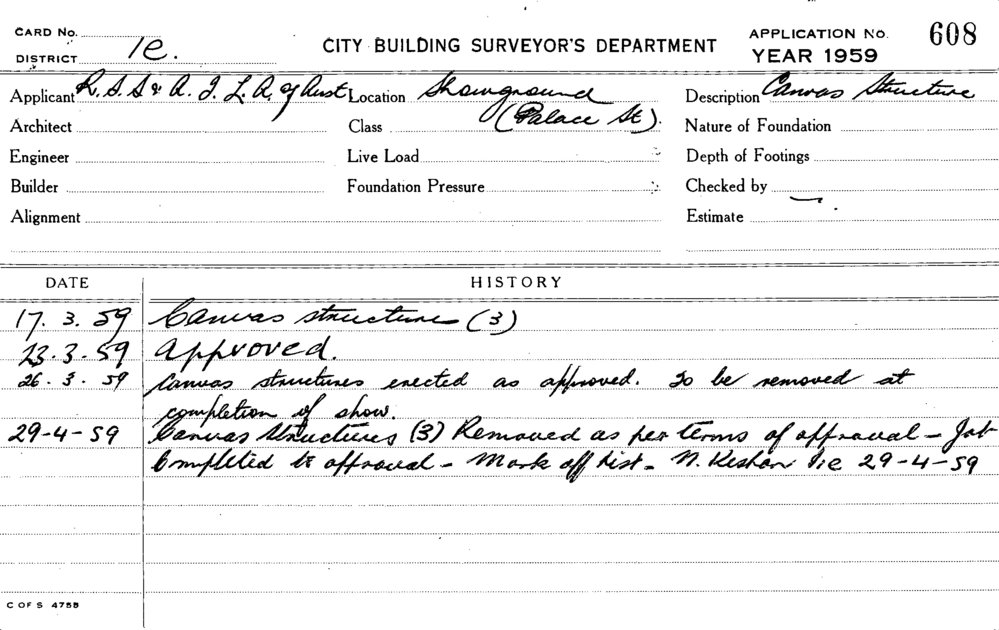 CARD No.
DISTRICT 1e.
CITY BUILDING SURVEYOR'S DEPARTMENT
APPLICATION No. 608
YEAR 1959
Applicant R. S. S & A. I. L. A. of Aust Location Showground Description Canvas Structure
Architect Class (Palace St). Nature of Foundation
Engineer Live Load Depth of Footings
Builder Foundation Pressure Checked by
Alignment Estimate
DATE HISTORY
17. 3. 59 Canvas structures (3)
23. 3. 59 Approved.
26. 3. 59 Canvas structures erected as approved. To be removed at
completion of show.
29-4-59 Canvas Structures (3) Removed as per terms of approval - Job
Completed to approval - Mark off list - N. 29-4-59
C OF S 4755